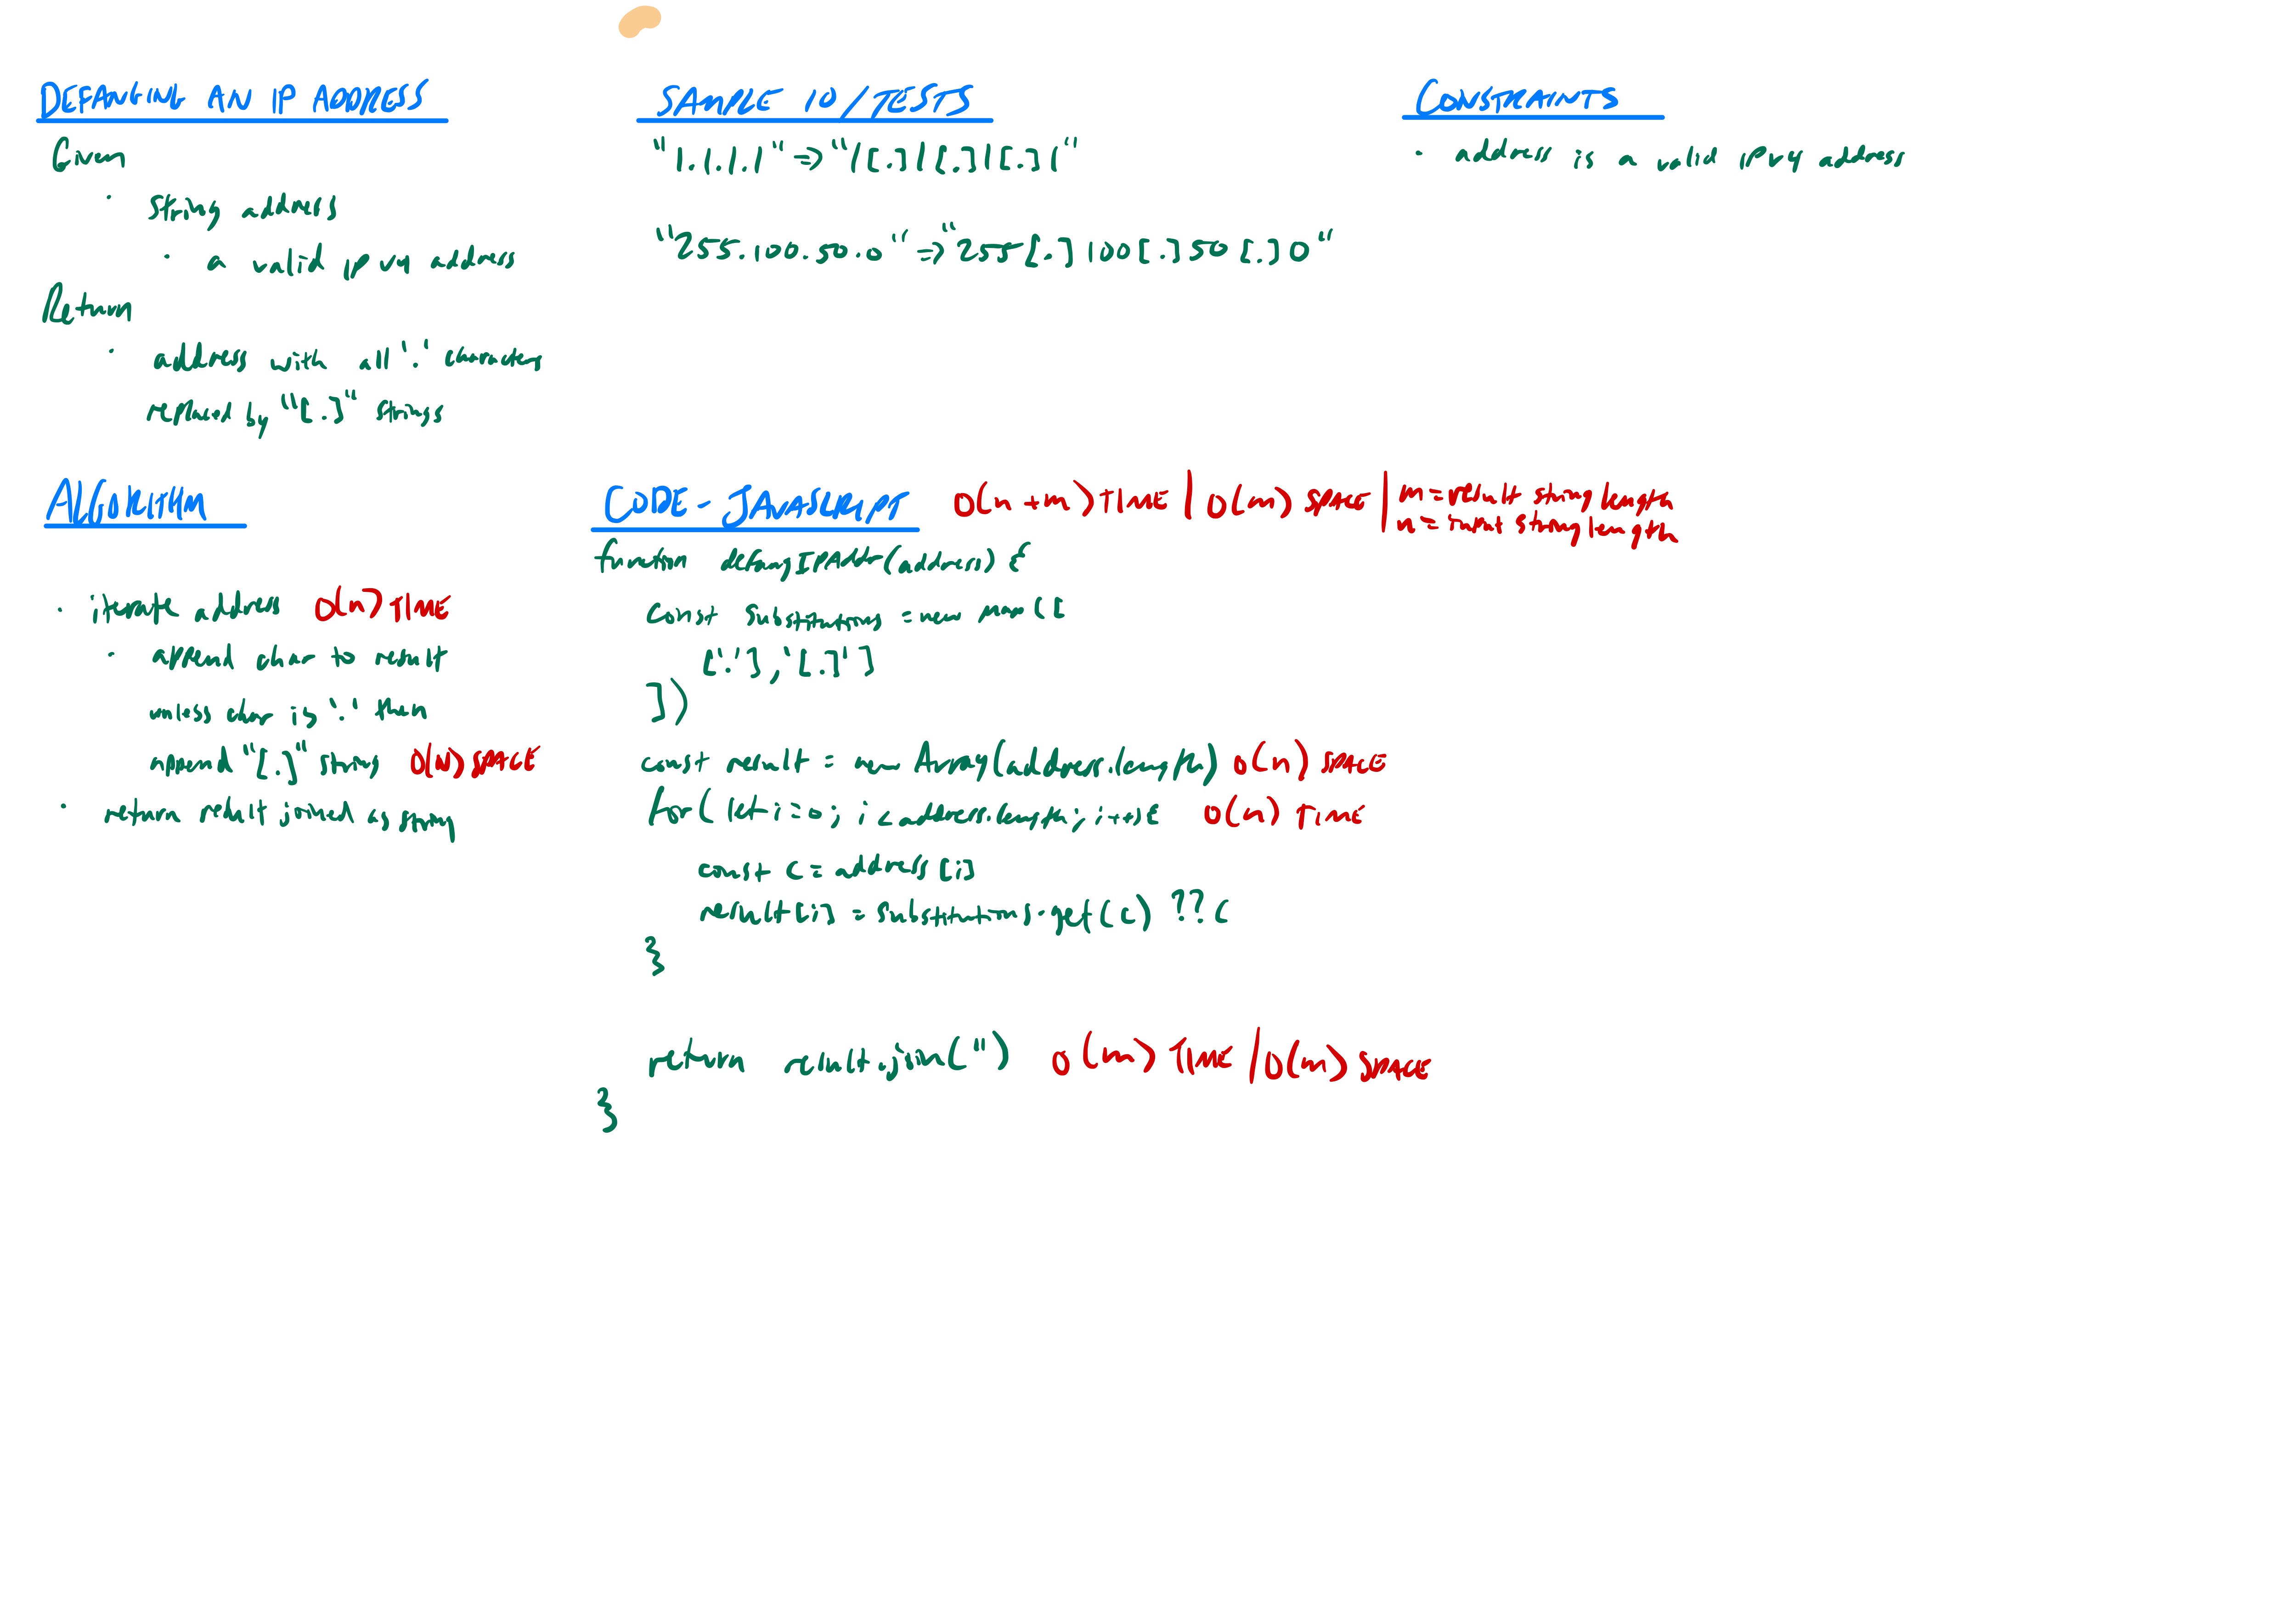 DEFANGING AN IP ADDRESS
Given
· string address
· a valid IPv4 address
Return
· address with all '.' characters
replaced by "[.]" strings
SAMPLE IO/TESTS
"1.1.1.1" => "1[.]1[.]1[.]1"
"255.100.50.0" => "255[.]100[.]50[.]0"
CONSTRAINTS
· address is a valid IPv4 address
ALGORITHM
· iterate address O(n) TIME
· append char to result
unless char is '.' then
append "[.]" string O(N) SPACE
· return result joined as string
CODE - JAVASCRIPT O(n+m) TIME | O(m) SPACE | m = result string length
n = input string length
function defangIPAddr(address) {
const substitutions = new Map([
['.'], '[.]']
])
const result = new Array(address.length) O(n) SPACE
for (let i=0; i < address.length; i++){ O(n) TIME
const c = address[i]
result[i] = substitutions.get(c) ?? c
}
return result.join('') O(m) TIME | O(m) SPACE
}